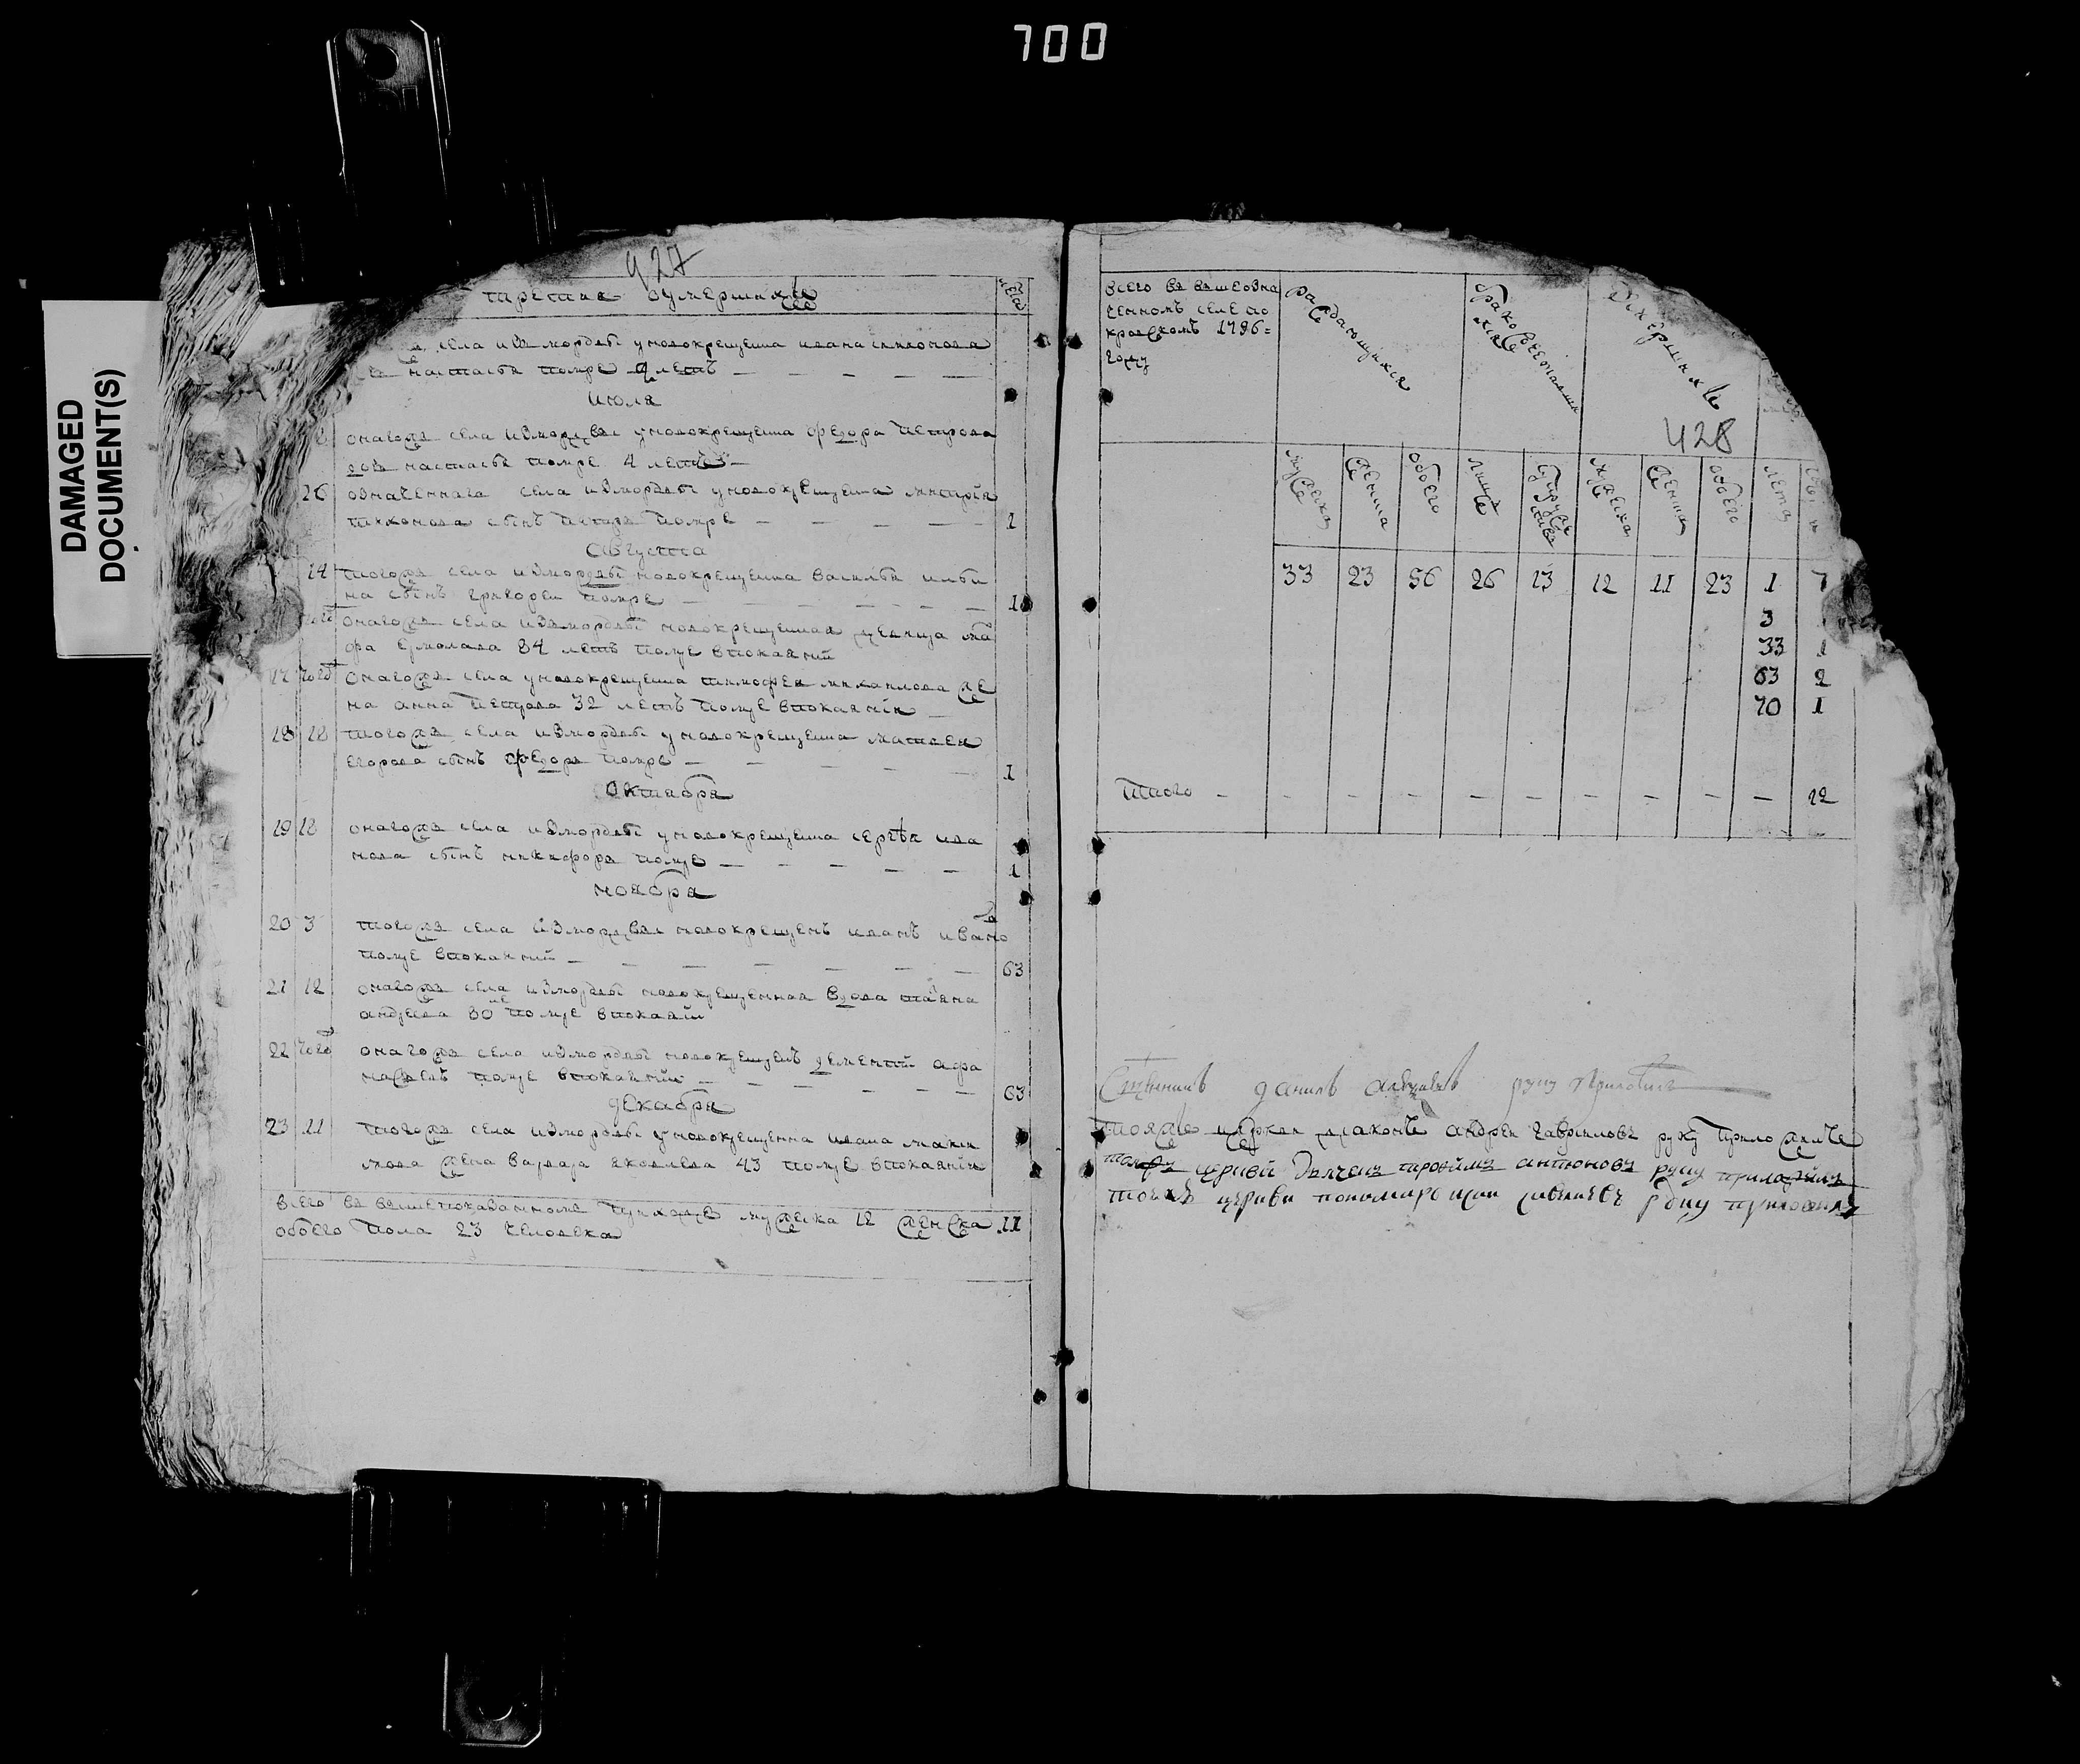 700
DAMAGED
DOCUMENT(S)
427
третия о умершихъ
лѣта
села изъ мордвы у новокрещена ивана никонова
настасья помре 9 летъ
июля
онагожъ села изъ мордвы у новокрещена феодора петрова
дочь настасья помре 4 летъ
26 означеннаго села изъ мордвы у новокрещена
тихонова сынъ петръ помре 1
августа
14 тогожъ села изъ мордвы новокрещена василья
на сынъ григореи помре 1
онагожъ села изъ мордвы новокрещенная девица
ермолава 84 летъ помре в покаянии
17 тогож онагожъ села у новокрещена тимофея михаилова же
на анна петрова 32 летъ помре в покаянии
18 12 тогожъ села изъ мордвы у новокрещена матвея
егорова сынъ феодоръ помре 1
октября
19 12 онагожъ села изъ мордвы у новокрещена сергѣя ива
нова сынъ никифоръ помре 1
ноября
20 3 тогожъ села изъ мордвы новокрещенъ иванъ ивано
помре в покаянии 63
21 12 онагожъ села изъ мордвы новокрещенная вдова татьяна
андреева 80 помре в покаянии
22 тогож онагожъ села изъ мордвы новокрещенъ дементий афа
насьевъ помре в покаянии 63
декабря
23 11 тогожъ села изъ мордвы у новокрещенна ивана
жена варвара яковлева 43 помре в покаянии
всего въ вышепоказанномъ приходе мужеска 12 женска 11
обоего пола 23 человека
428
всего въ вышеозна
ченномъ селе по
кровскомъ 1796=
году
раждающихся
бракосочетавши
хся
умершихъ
мужеска женска обоего лицъ супружествъ мужеска женска обоего лета
33 23 56 26 13 12 11 23 1 7
3
33 1
63 2
70 1
итого - - - - - - - - - 12
Священникъ данилъ руку приложилъ
тояже церкви диаконъ андреи гавриловъ руку приложилъ
тояже церкви дьячекъ трофимъ антоновъ руку приложилъ
тоежъ церкви пономарь савельевъ руку приложилъ